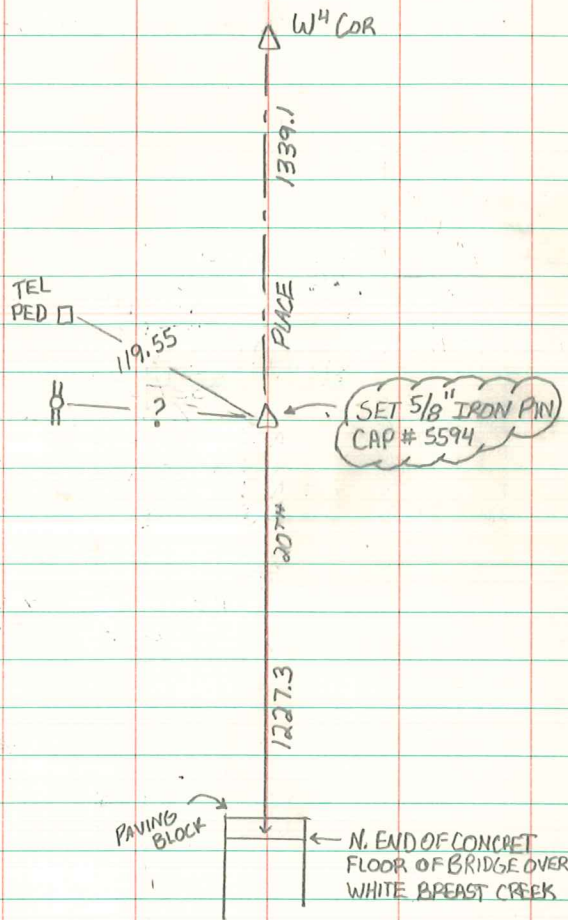 W⁴ COR
1339.1
TEL
PED
PLACE
119.55
?
SET 5/8" IRON PIN
CAP # 5594
20TH
1227.3
PAVING
BLOCK
N. END OF CONCRET
FLOOR OF BRIDGE OVER
WHITE BREAST CREEK